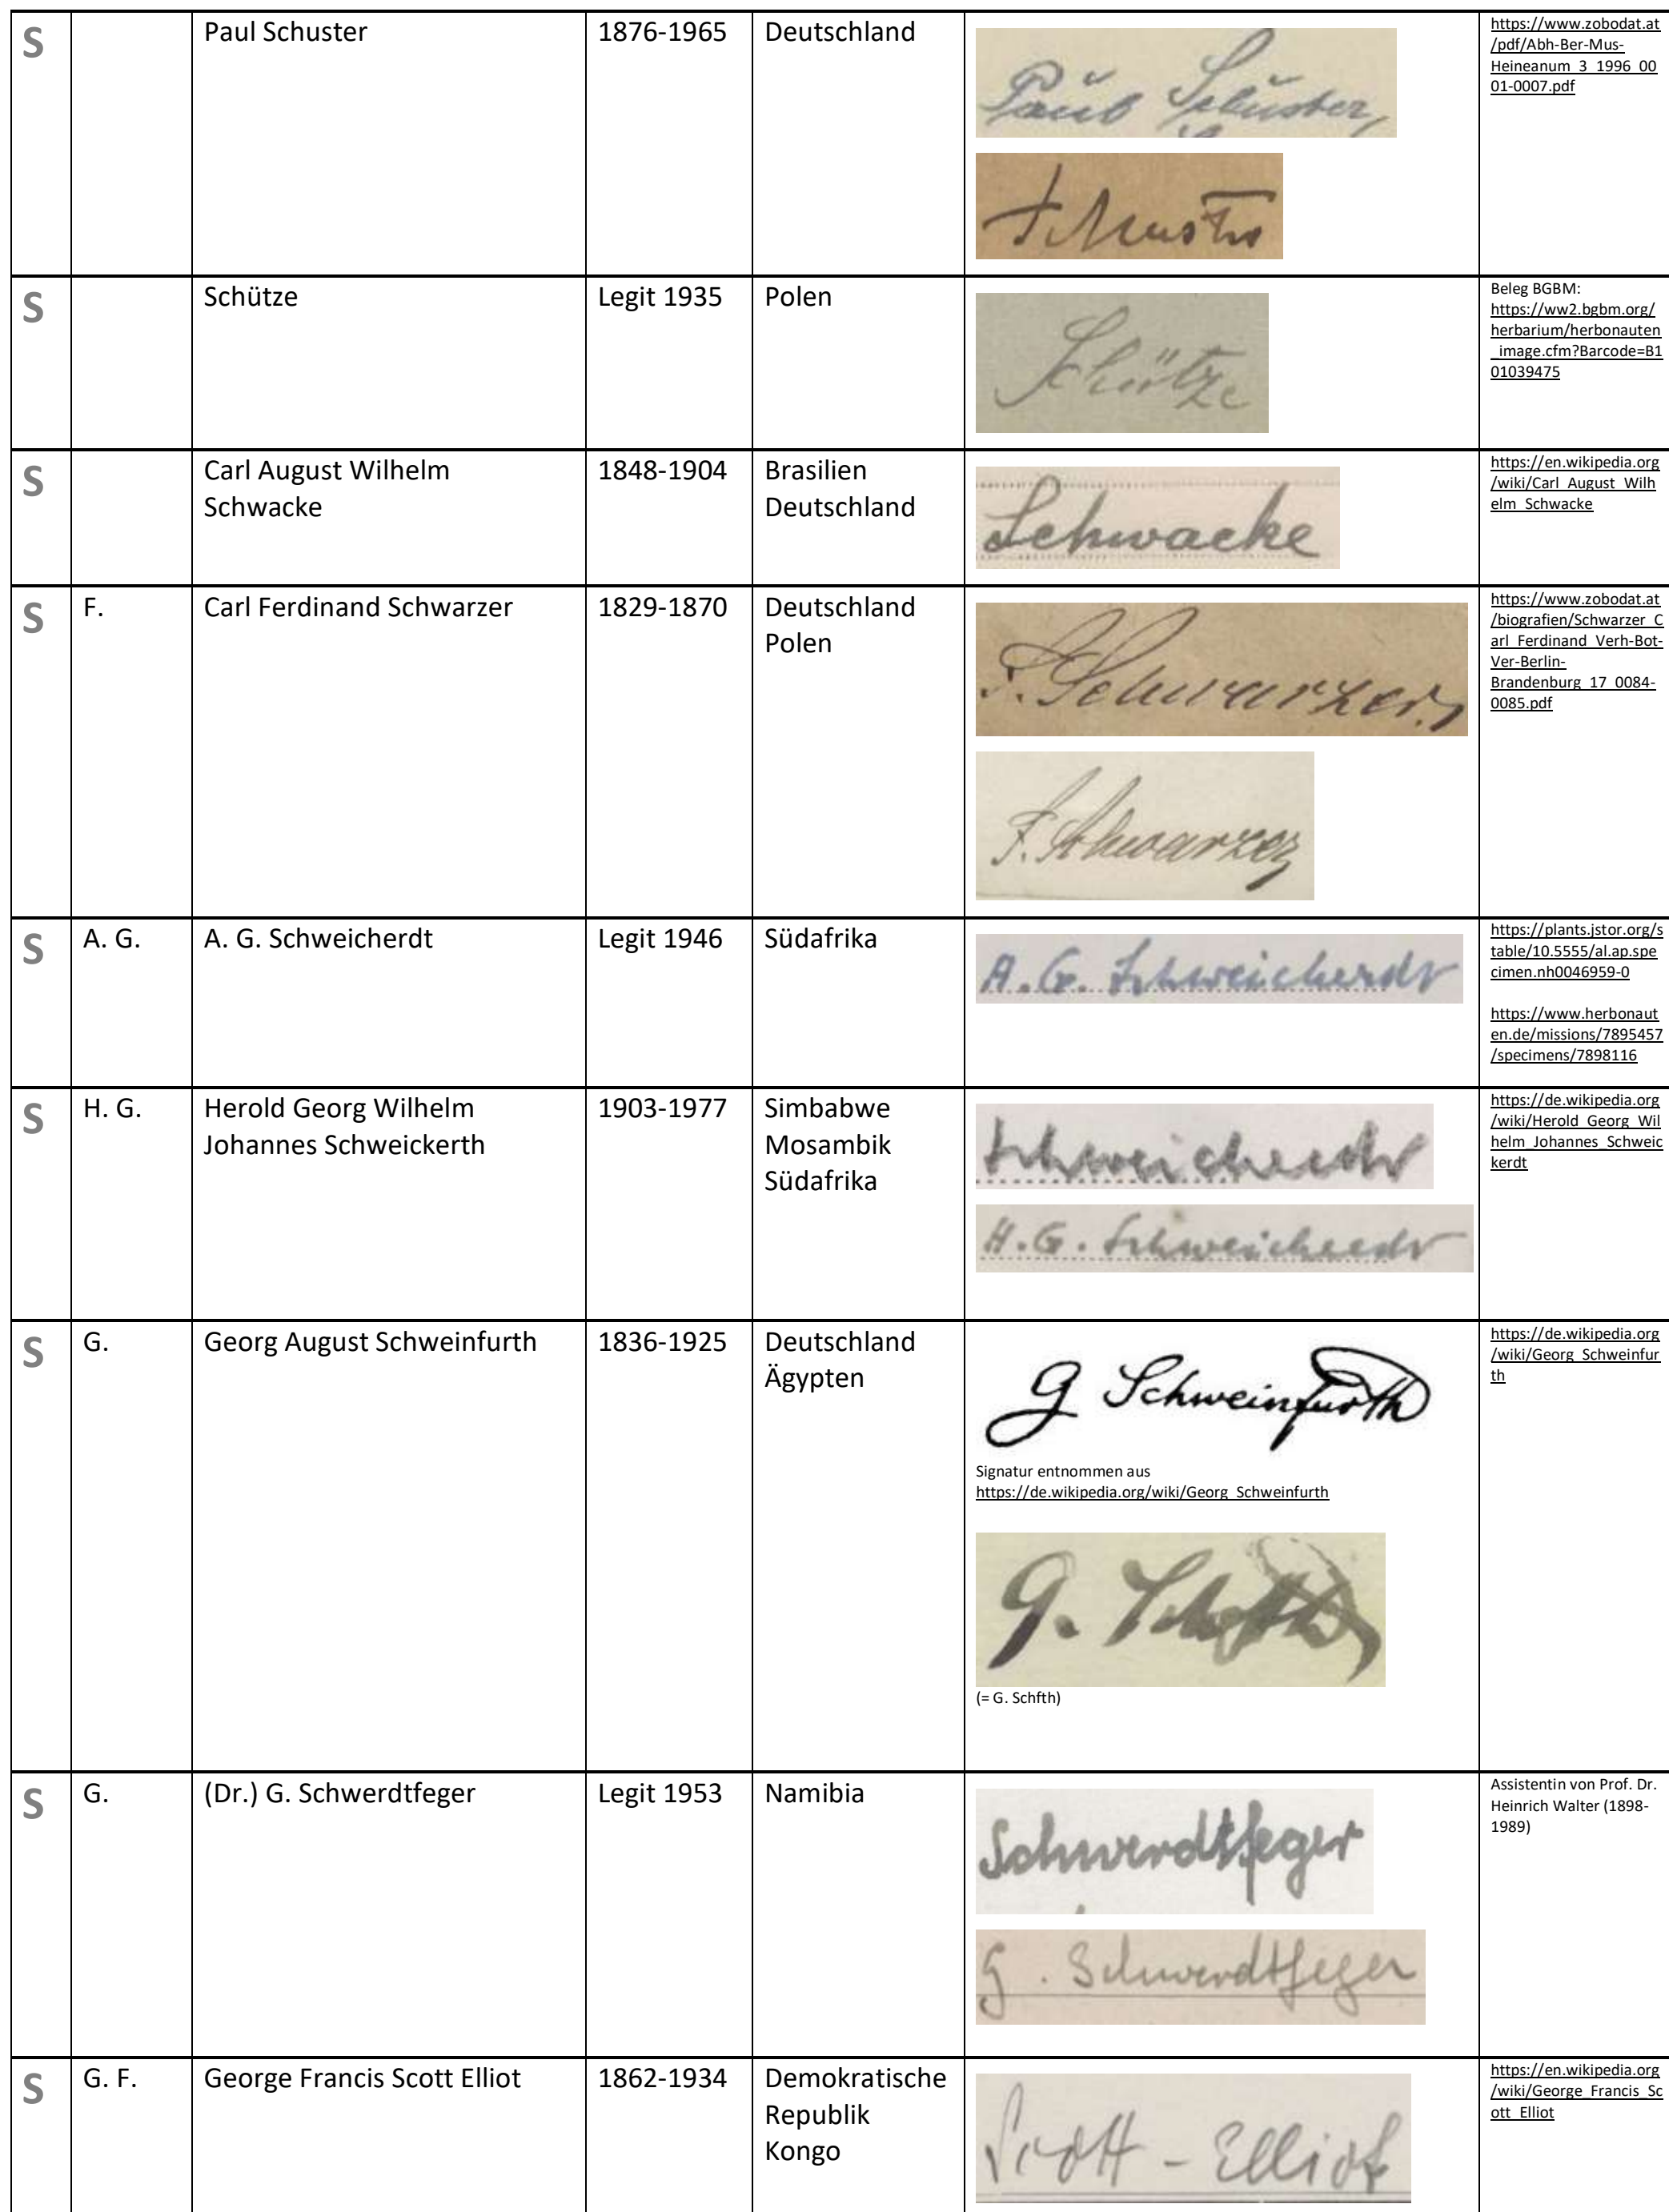 S
Paul Schuster
1876-1965
Deutschland
Paul Schuster
https://www.zobodat.at
/pdf/Abh-Ber-Mus-
Heineanum_3_1996_00
01-0007.pdf
S
Schütze
Legit 1935
Polen
Schütze
Beleg BGBM:
https://ww2.bgbm.org/
herbarium/herbonauten
_image.cfm?Barcode=B1
01039475
S
Carl August Wilhelm
Schwacke
1848-1904
Brasilien
Deutschland
Schwacke
https://en.wikipedia.org
/wiki/Carl_August_Wilh
elm_Schwacke
S
F.
Carl Ferdinand Schwarzer
1829-1870
Deutschland
Polen
F. Schwarzer
F. Schwarzer
https://www.zobodat.at
/biografien/Schwarzer_C
arl_Ferdinand_Verh-Bot-
Ver-Berlin-
Brandenburg_17_0084-
0085.pdf
S
A. G.
A. G. Schweicherdt
Legit 1946
Südafrika
A. G. Schweicherdt
https://plants.jstor.org/s
table/10.5555/al.ap.spe
cimen.nh0046959-0
https://www.herbonaut
en.de/missions/7895457
/specimens/7898116
S
H. G.
Herold Georg Wilhelm
Johannes Schweickerth
1903-1977
Simbabwe
Mosambik
Südafrika
Schweicherdt
H. G. Schweicherdt
https://de.wikipedia.org
/wiki/Herold_Georg_Wil
helm_Johannes_Schweic
kerdt
S
G.
Georg August Schweinfurth
1836-1925
Deutschland
Ägypten
G Schweinfurth
Signatur entnommen aus
https://de.wikipedia.org/wiki/Georg_Schweinfurth
G. Schfth
(= G. Schfth)
https://de.wikipedia.org
/wiki/Georg_Schweinfur
th
S
G.
(Dr.) G. Schwerdtfeger
Legit 1953
Namibia
Schwerdtfeger
G. Schwerdtfeger
Assistentin von Prof. Dr.
Heinrich Walter (1898-
1989)
S
G. F.
George Francis Scott Elliot
1862-1934
Demokratische
Republik
Kongo
Scott - Elliot
https://en.wikipedia.org
/wiki/George_Francis_Sc
ott_Elliot